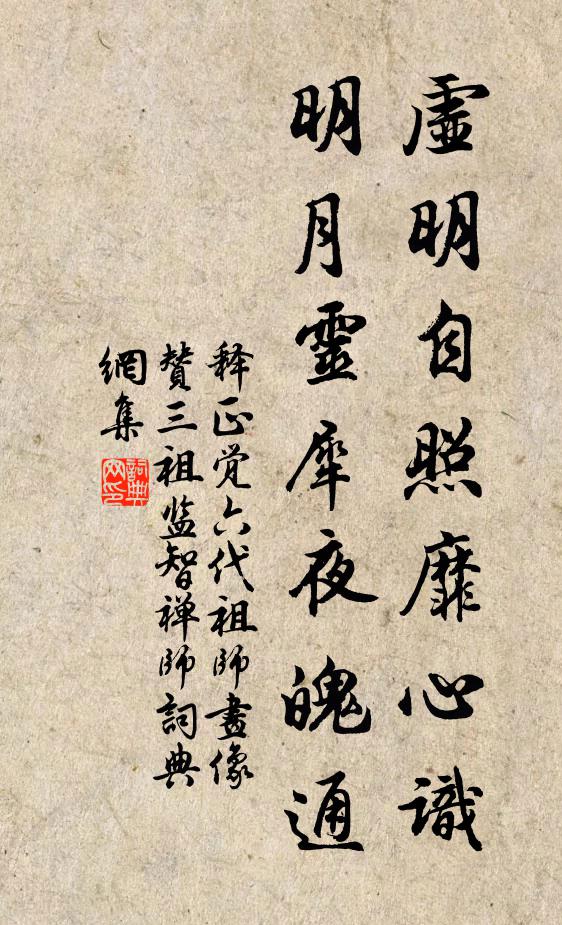 虛明自照靡心識
明月靈犀夜魄通
释正觉六代祖師畫像
贊三祖监智禅師詞典
網集
詞典
网印